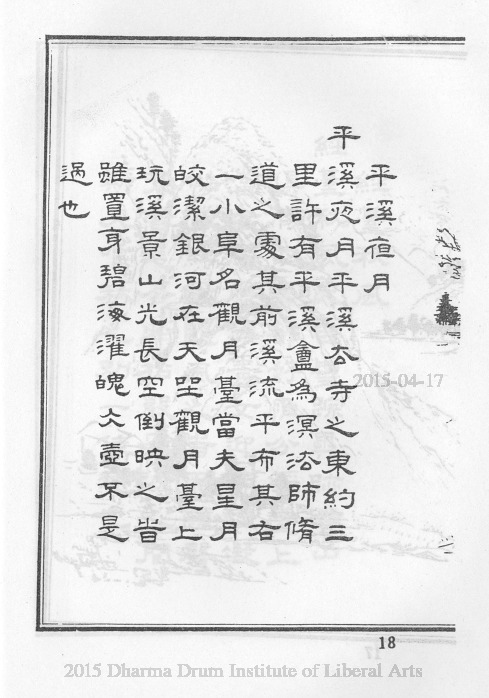 平溪夜月
平溪夜月平溪去寺之東約三
里許有平溪盦為溟法師脩
道之處其前溪流平布其右
一小阜名觀月臺當夫星月
皎潔銀河在天坐觀月臺上
玩溪景山光長空倒映之旹
雖置身碧海濯魄仌壺不是
過也
2015-04-17
18
2015 Dharma Drum Institute of Liberal Arts